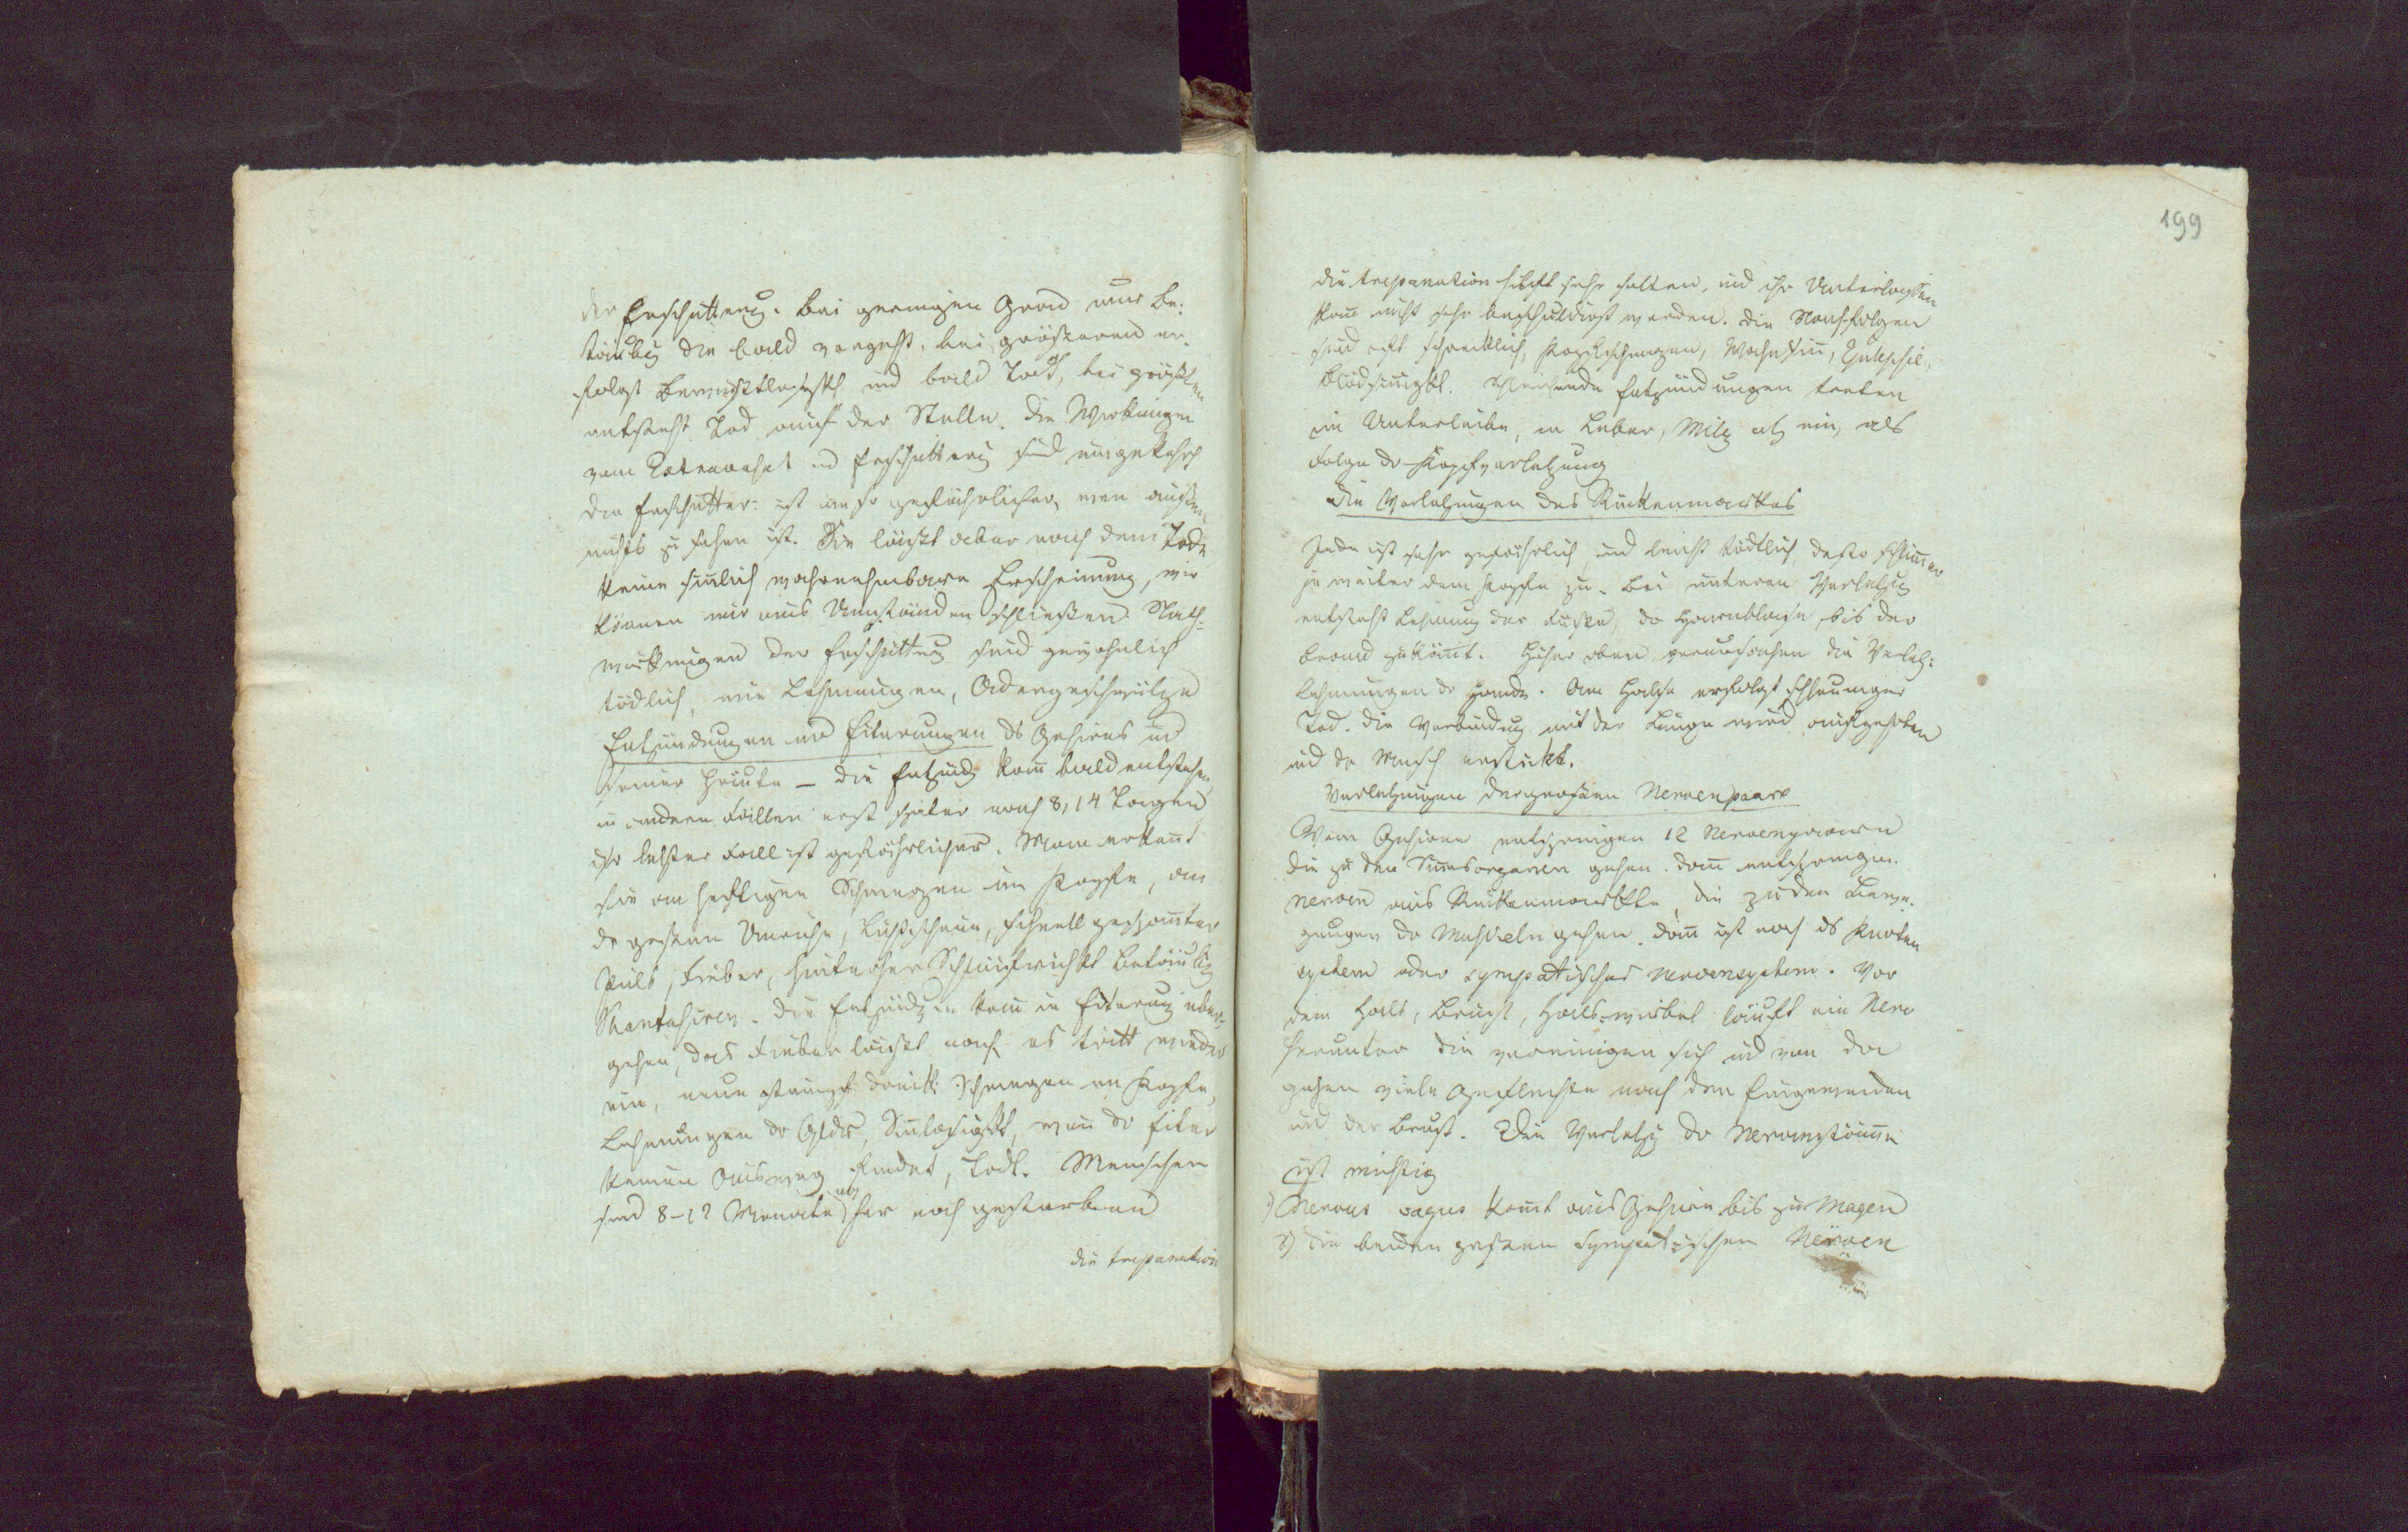 der Erschütterug. Bei geringem Grad nur Be-
täubg die bald vergeht, bei größerem er-
folgt Bewußtlosigkt und bald Todt, bei größtem
entsteht Tod auf der Stelle. Die Wirkungen
vom Extravasat und Erschütterg sind umgekehrt
die Erschütter: ist um so gefährlicher, wen außen
nichts zu sehen ist. Sie läßt aber nach dem Tode
keine sinlich wahrnehmbare Erscheinung, wir
könen nur aus Umständen schließen. Nach-
wirkungen der Erschüttug sind gewöhnlich
tödlich, wie Lehmungen, Adergeschwülge
Entzündungen und Eiterungen ds Gehirns und
seiner Häute – die Entzündg kan bald entstehen,
in andern Fällen erst später nach 8, 14 Tagen
der letzter Fall ist gefährlicher. Man erkent
sie an heftigen Schmerzen im Kopfe, an
der großen Unruhe, Lichtscheue, schnell gespanter
Puls, Fieber, hinterher Betäubg
Phantasiren. Die Entzündg kan in Eiterung über-
gehen, das Fieber läßt nach es tritt wieder
ein, neue stumpf drück: Schmerzen im Kopfe,
Lehmungen der Glieder, Sinlosigkt, wen der Eiter
keinen Ausweg findet, Todt. Menschen
sind 8–12 Monate her noch gestorben
die trepanation
199
die trepanation hilft sehr selten, und ihr Unterlaßen
kan nicht sehr beschuldigt werden. Die Nachfolgen
sind oft schrecklich, Kopfschmerzen, Wahnsin, Epilepsie,
Blödsinigkt. Schleichende Entzündungen treten
im Unterleibe, in Leber, Milz etz ein, als
Folge der Kopfverletzung
Die Verletzungen des Rückenmarkes
Jede ist sehr gefährlich und leicht tödtlich, desto schlimer
je weiter dem Kopfe zu. Bei unteren Verletzg
entsteht Lehmung der Füße, der Harnblase, bis der
Brand zukömt. Höher oben verursachen die Verletz:
Lehmungen der Hände. Am Halse erfolgt schleuniger
Tod. Die Verbindug mit der Lunge wird aufgehoben
und der Mensch erstickt.
Verletzungen der großen Nervenpaare
Vom Gehirne entspringen 12 Nervenpaare
die zu den Sinesorganen gehen. Dan entspringen
nerven aus Rückenmarke, die zu den Bewe-
gungen der Muskeln gehen. Dan ist noch ds Knoten
system oder sympatisches nervensystem. Vor
dem Hals, Brust, Hals-wirbel läuft ein Nerv
herunter die vereinigen sich und von da
gehen viele Geflechte nach den Eingeweiden
und der Brust. Die Verletzg der Nervenstäme
ist wichtig
1) Nervus vagus komt aus Gehirn bis zu Magen
2) die beiden großen Sympatischen Nerven